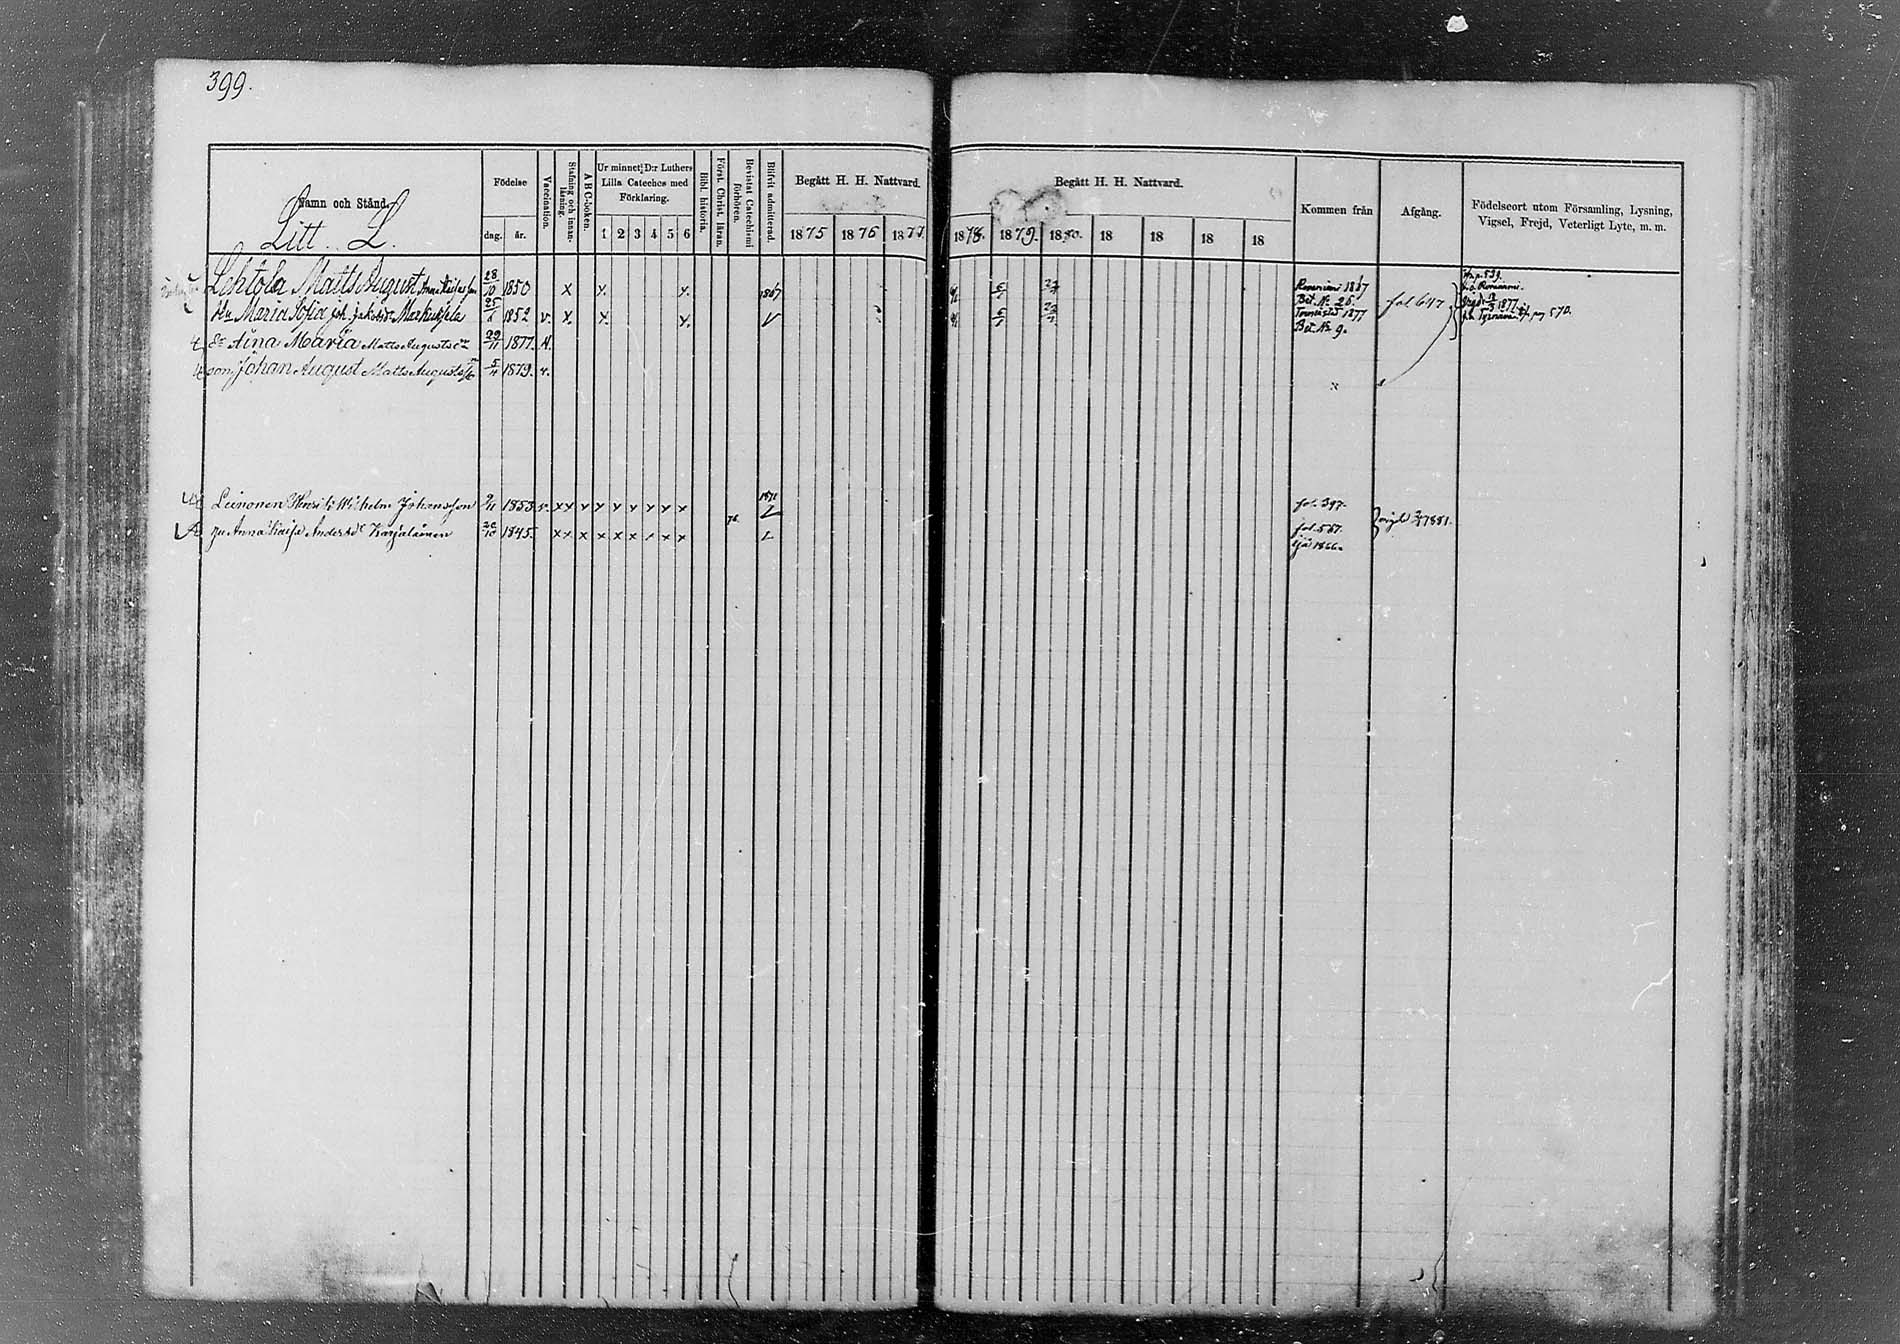 399.
Namn och Stånd.
Litt. L.
Födelse
dag. år.
Vaccination.
Stafning och innanläsning.
A B C-boken.
Ur minnet: D:r Luthers Lilla Cateches med Förklaring.
1 2 3 4 5 6
Bibl. historia.
Först. Christ. läran.
Bevistat Catechismi förhören.
Blifvit admitterad.
Begått H. H. Nattvard.
1875 1876 1877.
Begått H. H. Nattvard.
1878. 1879. 1880. 18 18 18 18
Kommen från
Afgång.
Födelseort utom Församling, Lysning, Vigsel, Frejd, Veterligt Lyte, m. m.
Lehtola Matts August 28/10 1850 x x. x. 1867 Rovaniemi 1867
Bet. No 26. fol 647
Hu Maria Sofia Joh. Jakobsdr Markuksela 25/6 1852 v. x. x. x. 1877
Bet No 9.
Dr Aina Maria Matts Augustsdr 29/11 1877.
son Johan August Matts Augustss. 5/4 1879. v.
Leinonen Henrik Wilhelm Johansson 9/11 1853 v. x x x x x x x x x 1871 fol. 397.
Anna Kaisa Andersdr Karjalainen 20/10 1845. x x x x x x x x x fol. 587. 1881.
1866.